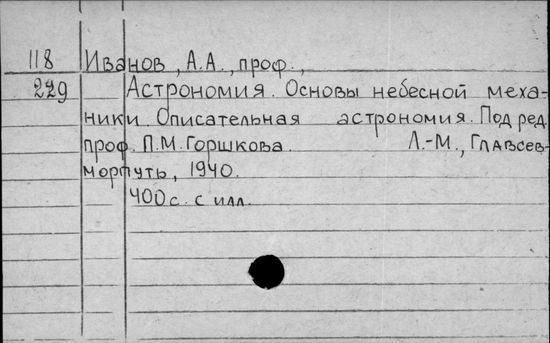 118 Иванов, А.А., проф.,
229 Астрономия. Основы небесной меха-
ники. Описательная астрономия. Под ред.
проф. П.М. Горшкова. Л.-М., Главсев-
морпуть, 1940.
400 с. с илл.